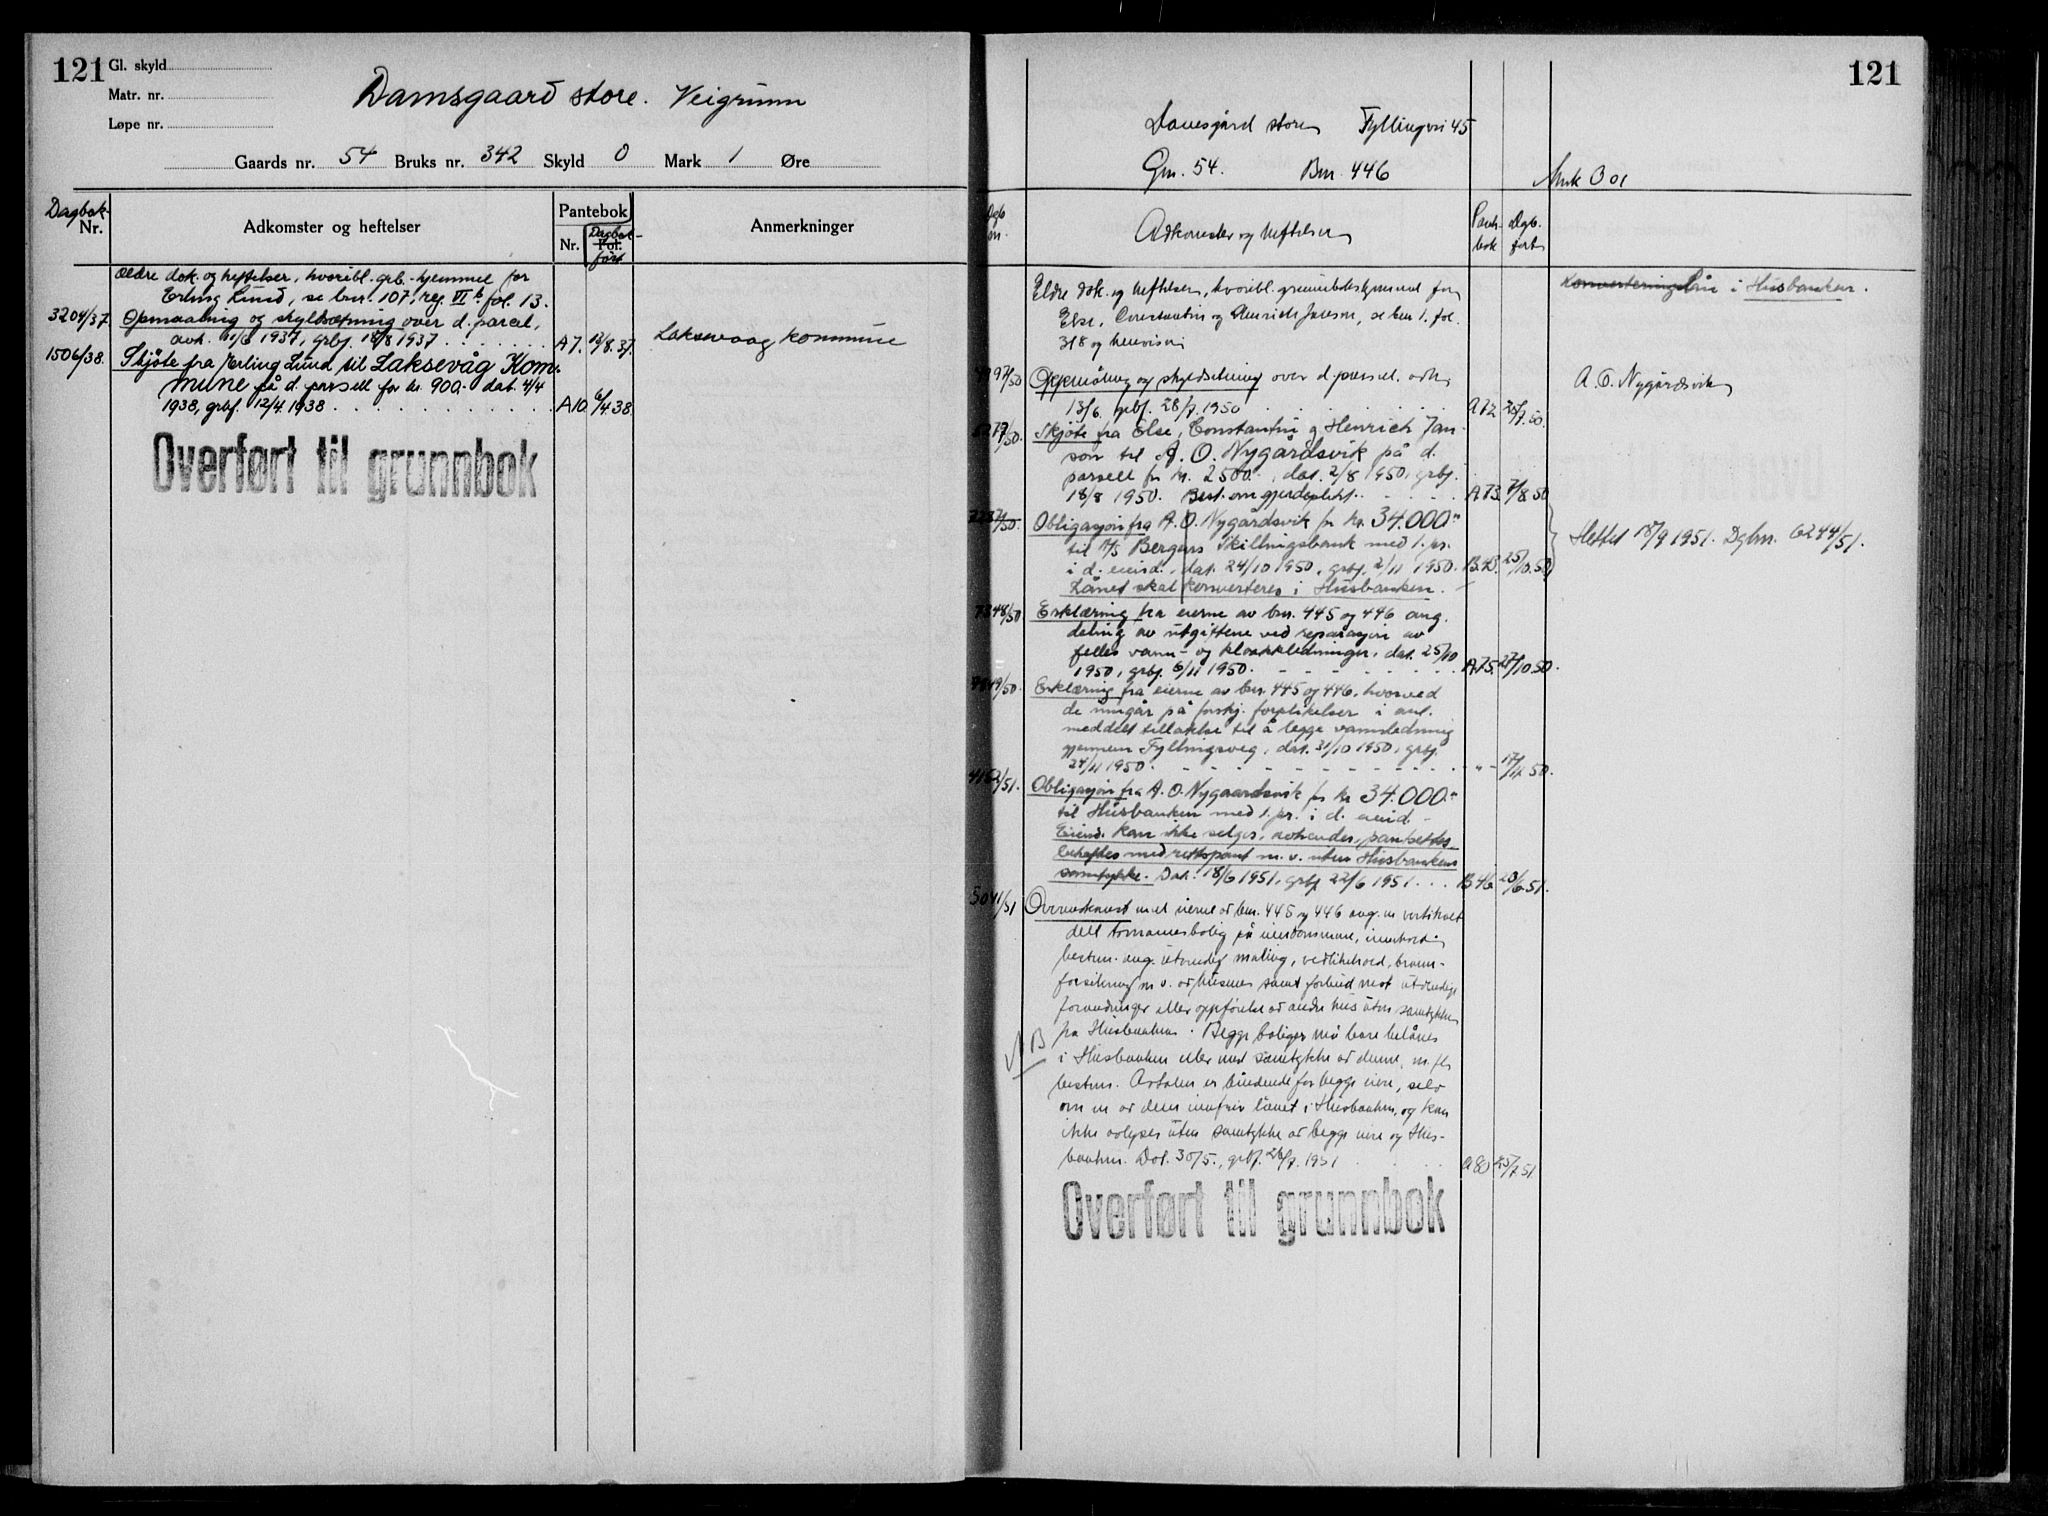 121
Gl. skyld
Matr. nr.
Løpe nr.
Damsgaard store. Veigrunn
Gaards nr. 54 Bruks nr. 342 Skyld 0 Mark 1 Øre
Dagbok Nr.
Adkomster og heftelser
Pantebok
Nr.
Fol.
Dagbok- ført
Anmerkninger
Ældre dok. og heftelser, hvoribl. grb.-hjemmel for
Erling Lund, se bnr. 107, reg. VI b fol. 13.
3204/37. Opmaaling og skyldsætning over d. parcel,
avh. 11/6 1937, grbj. 18/8 1937 . . . . . . A7. 8.37. Laksevaag kommune
1506/38. Skjøte fra Erling Lund til Laksevåg Kom-
mune på d. parsell for kr. 900.- dat. 4/4
1938, grbf. 12/4 1938 . . . . . . . . . . A10. 6/4 38.
Overført til grunnbok
121
Damsgård store Fyllingsvei 45
Gnr. 54. Bnr. 446
Mrk 0 01
Dgb. nr.
Adkomster og heftelser
Pante- bok
Dgb. ført
Eldre dok. og heftelser, hvoribl. grunnbokshjemmel for
Else, Constantin og Henrich Janson, se bnr 1. fol.
318 og henvisn.
Konverteringslån i Husbanken.
/50 Oppmåling og skyldsetning over d. parsel. avh.
13/6, grbf. 28/7. 1950 . . . . . A72 /7.50.
A. O. Nygårdsvik
/50. Skjøte fra Else, Constantin og Henrich Jan-
son til A. O. Nygårdsvik på d.
parsell for kr. 2500.-, dat. 2/8 1950, grbj.
18/8 1950. Best. om gjerdeplikt. . . . . A73. /8 50
/50. Obligasjon fra A. O. Nygårdsvik for kr. 34.000.-
til A/S Bergens Skillingsbank med 1. pr.
i d. eiend., dat. 24/10 1950, grbj. 2/11 1950. 25/10.50
Lånet skal konverteres i Husbanken.
Slettet 18/9 1951. Dgbnr. 6244/51.
7348/50 Erklæring fra eierne av bnr. 445 og 446 ang.
deling av utgiftene ved reparasjon av
felles vann- og kloakkledninger, dat. 25/10
1950, grbj. 6/11 1950. - - - - - - A.75. 27/10.50.
/50. Erklæring fra eierne av bnr. 445 og 446, hvorved
de inngår på forskj. forpliktelser i anl.
meddelt tillatelse til å legge vannledning
gjennem Fyllingsveg, dat. 31/10 1950, grbj.
24/11 1950. - - - - - - - - - - - " - 17/11.50.
4152/51. Obligasjon fra A. O. Nygaardsvik for kr 34.000.-
til Husbanken med 1. pr. i d. eiend.-
Eiend. kan ikke selges, avhendes, pantsettes,
beheftes med rettspant m. v. uten Husbankens
samtykke. Dat. 18/6 1951, grbj 22/6 1951 . . . B46. 20/6.51.
5041/51 Overenskomst med eierne av bnr. 445 og 446 ang. en vertikalt
delt tomannsbolig på eiendommene, innehold.
bestem. ang. utvendig maling, vedlikehold, brann-
forsikring m. v. av husene samt forbud mot utvendige
forandringer eller oppførelse av andre hus uten samtykke
fra Husbanken. Begge boliger må bare belånes
NB
i Husbanken eller med samtykke av denne, m. fl.
bestem. Avtalen er bindende for begge eiere, selv
om en av dem innfrir lånet i Husbanken, og kan
ikke avlyses uten samtykke av begge eiere og Hus-
banken. Dat. 30/5., grbf. 26/7. 1951 . . . A 80 25/7.51.
Overført til grunnbok